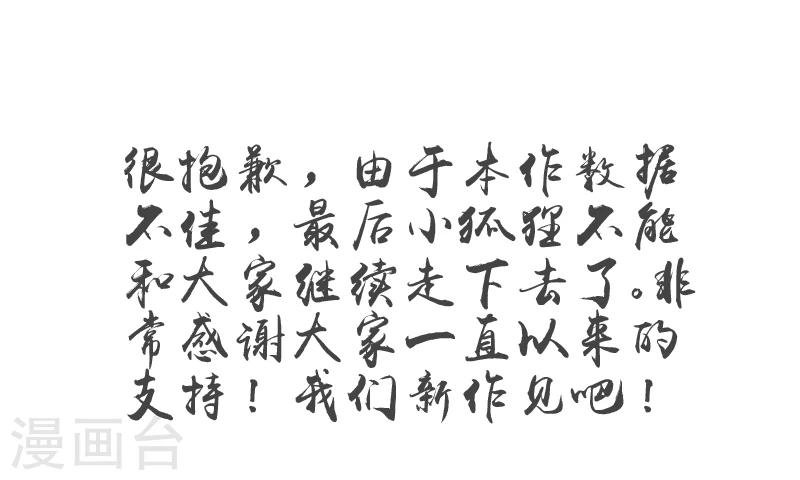 很抱歉，由于本作数据
不佳，最后小狐狸不能
和大家继续走下去了。非
常感谢大家一直以来的
支持！我们新作见吧！
漫画台